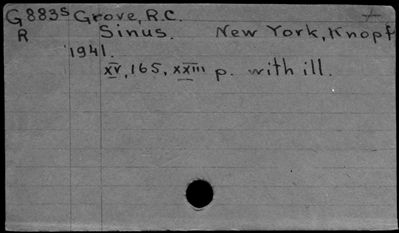 G883s Grove, R.C.
R Sinus. New York, Knopf
1941.
xv, 165, xxiii p. with ill.